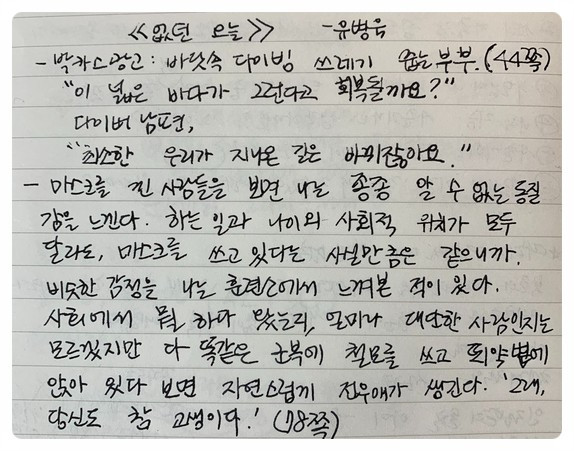 <<없던 오늘>> - 유병욱
- 박카스광고 : 바닷속 다이빙 쓰레기 줍는 부부. (44쪽)
"이 넓은 바다가 그런다고 회복될까요?"
다이버 남편,
"최소한 우리가 지나온 길은 바뀌잖아요."
- 마스크를 낀 사람들을 보면 나는 종종 알 수 없는 동질
감을 느낀다. 하는 일과 나이와 사회적 위치가 모두
달라도, 마스크를 쓰고 있다는 사실만큼은 같으니까.
비슷한 감정을 나는 훈련소에서 느껴본 적이 있다.
사회에서 뭘 하다 왔는지, 얼마나 대단한 사람인지는
모르겠지만 다 똑같은 군복에 철모를 쓰고 뙤약볕에
앉아 있다 보면 자연스럽게 전우애가 생긴다. '그래,
당신도 참 고생이다.' (78쪽)